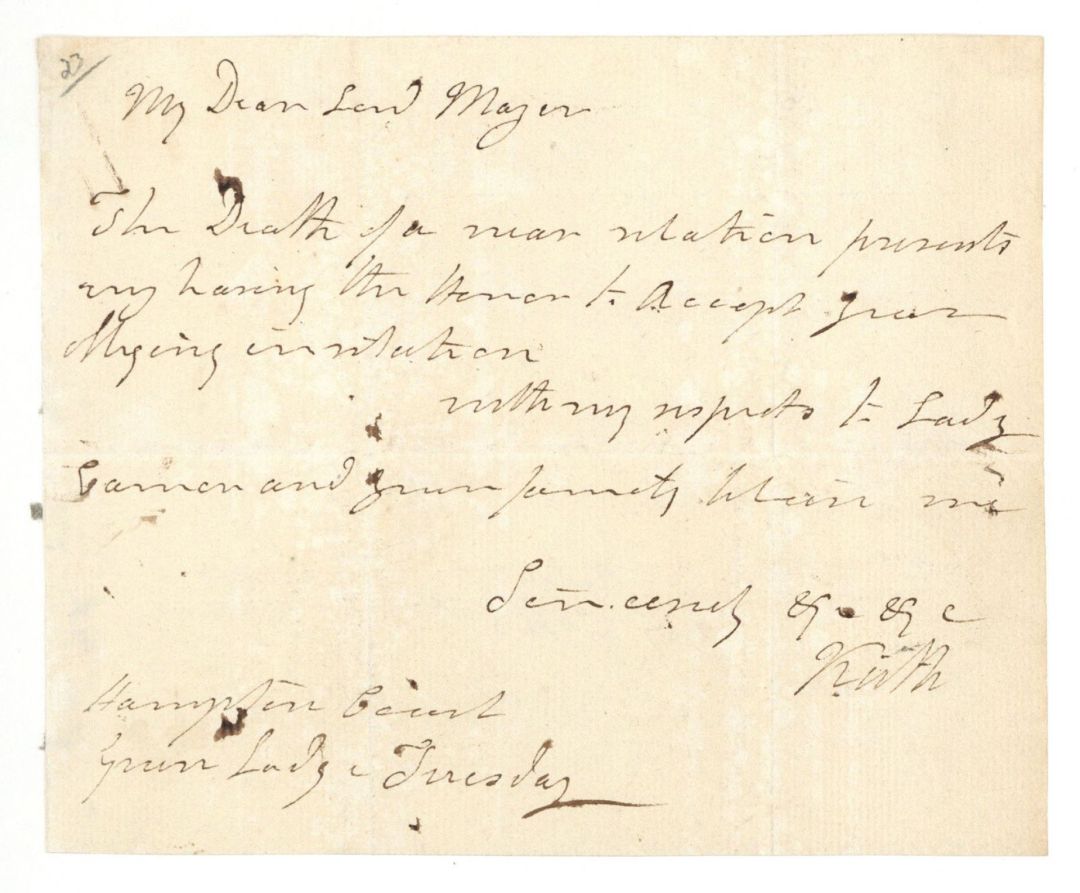 23
My Dear Lord Mayor
The Death of a near relation prevents
my having the Honor to Accept your
obliging invitation
with my respects to Lady
Eamer and your family believe me
Sincerely &c &c
Keith
Hampton Court
Green Lodge Tuesday